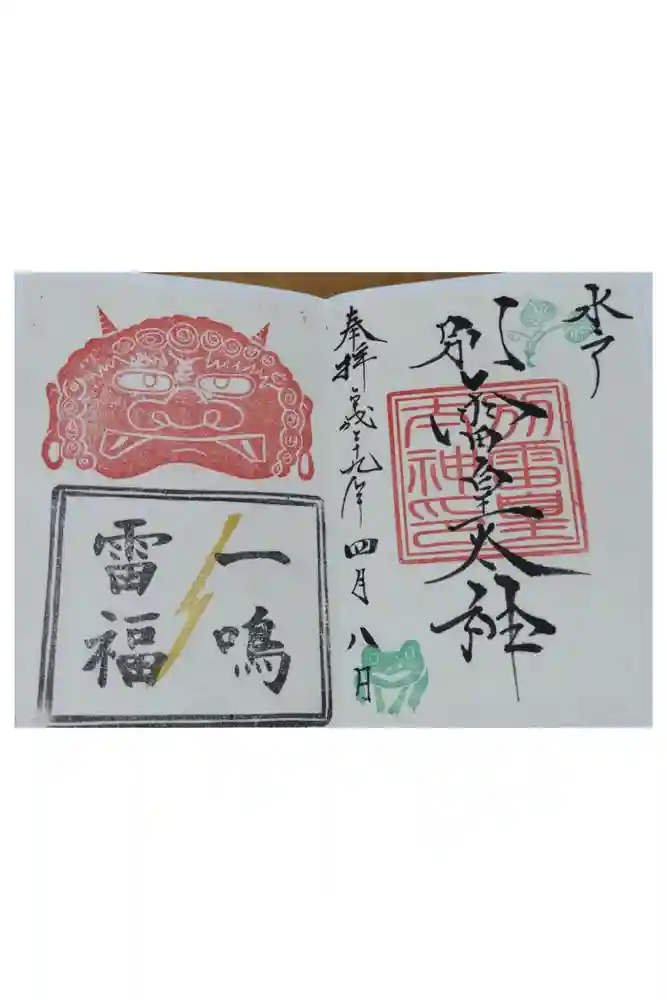 水戸
別雷皇太神
別雷皇
太神印
奉拝 平成二十九年 四月八日
一鳴
雷福